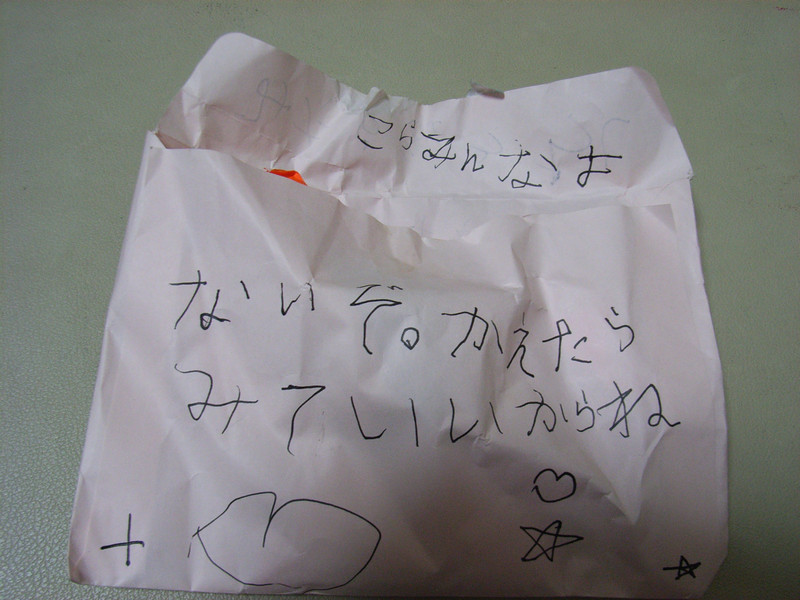 こらみんなよ
ないぞ。かえたら
みていいからね